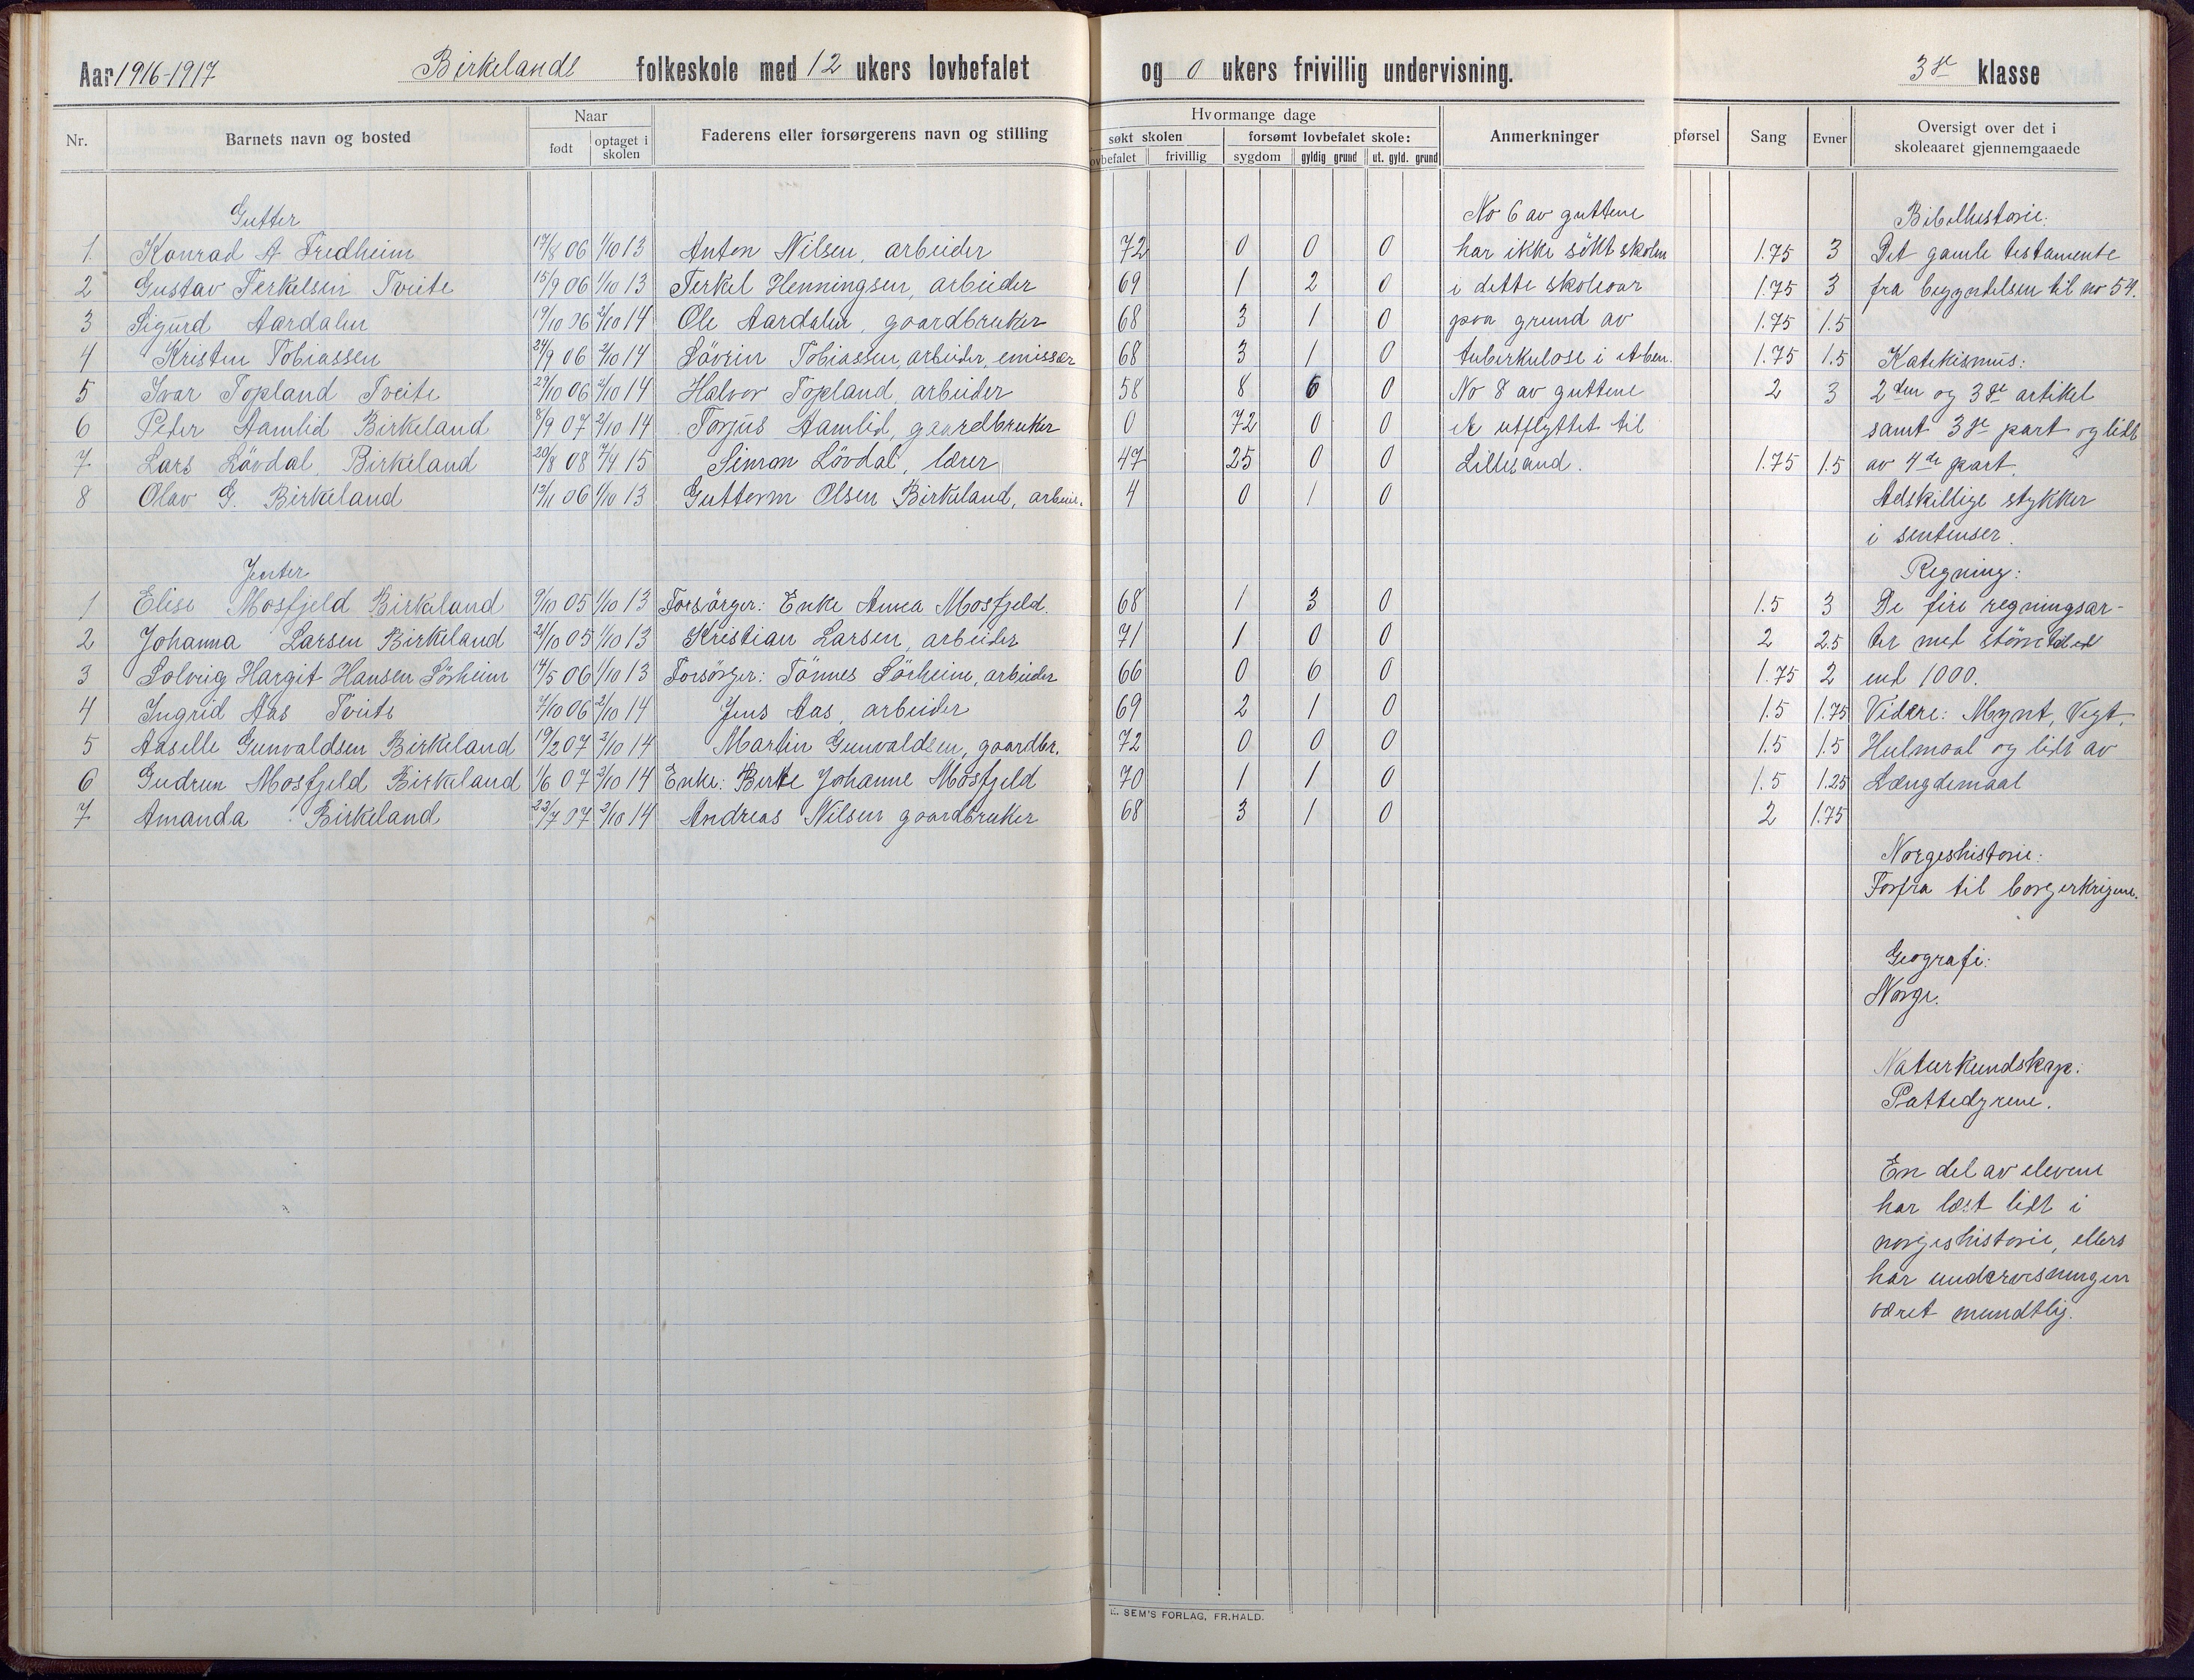 Aar 1916-1917 Birkelands folkeskole med 12 ukers lovbefalet og 0 ukers frivillig undervisning. 3die klasse
Nr. Barnets navn og bosted Naar født optaget i skolen Faderens eller forsørgerens navn og stilling
Hvormange dage søkt skolen ovbefalet frivillig forsømt lovbefalet skole: sygdom gyldig grund ut. gyld. grund Anmerkninger pførsel Sang Evner Oversigt over det i skoleaaret gjennemgaaede
Gutter
1 Konrad A Fredheim 17/8 06 1/10 13 Anton Nilsen, arbeider 72 0 0 0 1.75 3
2 Gustav Terkelsen Tveite 15/9 06 1/10 13 Terkel Henningsen, arbeider 69 1 2 0 1.75 3
3 Sigurd Aardalen 19/10 06 2/10 14 Ole Aardalen, gaardbruker 68 3 1 0 1.75 1.5
4 Kristen Tobiassen 24/9 06 2/10 14 Sövrin Tobiassen, arbeider, emissær 68 3 1 0 1.75 1.5
5 Ivar Topland Tveite 29/10 06 2/10 14 Halvor Topland, arbeider 58 8 6 0 2 3
6 Peter Aamlid Birkeland 8/9 07 2/10 14 Torjus Aamlid, gaardbruker 0 72 0 0
7 Lars Lövdal Birkeland 20/8 08 7/4 15 Simon Lövdal, lærer 47 25 0 0 1.75 1.5
8 Olav G. Birkeland 12/11 06 1/10 13 Guttorm Olsen Birkeland, arbeid. 4 0 1 0
Jenter
1 Elise Mosfjeld Birkeland 9/10 05 1/10 13 Forsörger: Enke Anna Mosfjeld. 68 1 3 0 1.5 3
2 Johanna Larsen Birkeland 21/10 05 1/10 13 Kristian Larsen, arbeider 71 1 0 0 2 2.5
3 Solveig Hargit Hansen Sörheim 14/5 06 1/10 13 Forsörger: Tönnes Sörheim, arbeider 66 0 6 0 1.75 2
4 Ingrid Aas Tveite 7/10 06 2/10 14 Jens Aas, arbeider 69 2 1 0 1.5 1.75
5 Aaselle Gunvaldsen Birkeland 19/2 07 2/10 14 Martin Gunvaldsen, gaardbr. 72 0 0 0 1.5 1.5
6 Gudrun Mosfjeld Birkeland 1/6 07 2/10 14 Enke: Berte Johanne Mosfjeld 70 1 1 0 1.5 1.25
7 Amanda Birkeland 22/7 07 2/10 14 Andreas Nilsen gaardbruker 68 3 1 0 2 1.75
No 6 av guttene
har ikke sökt skolen
i dette skoleaar
paa grund av
tuberkulose i
No 8 av guttene
er utflyttet til
Lillesand.
Bibelhistorie:
Det gamle testamente
fra begyndelsen til no 54.
Katekismus:
2den og 3die artikel
samt 3die part og lidt
av 4de part.
Adskillige stykker
i sentenser.
Regning:
De fire regningsar-
ter med
end 1000.
Videre: Mynt, Vegt,
Hulmaal og lidt av
Længdemaal
Norgeshistorie:
Forfra til borgerkrigene.
Geografi:
Norge.
Naturkundskap:
Pattedyrene.
En del av elevene
har læst lidt i
norgeshistorie, ellers
har undervisningen
været mundtlig.
E. SEM'S FORLAG, FR.HALD.